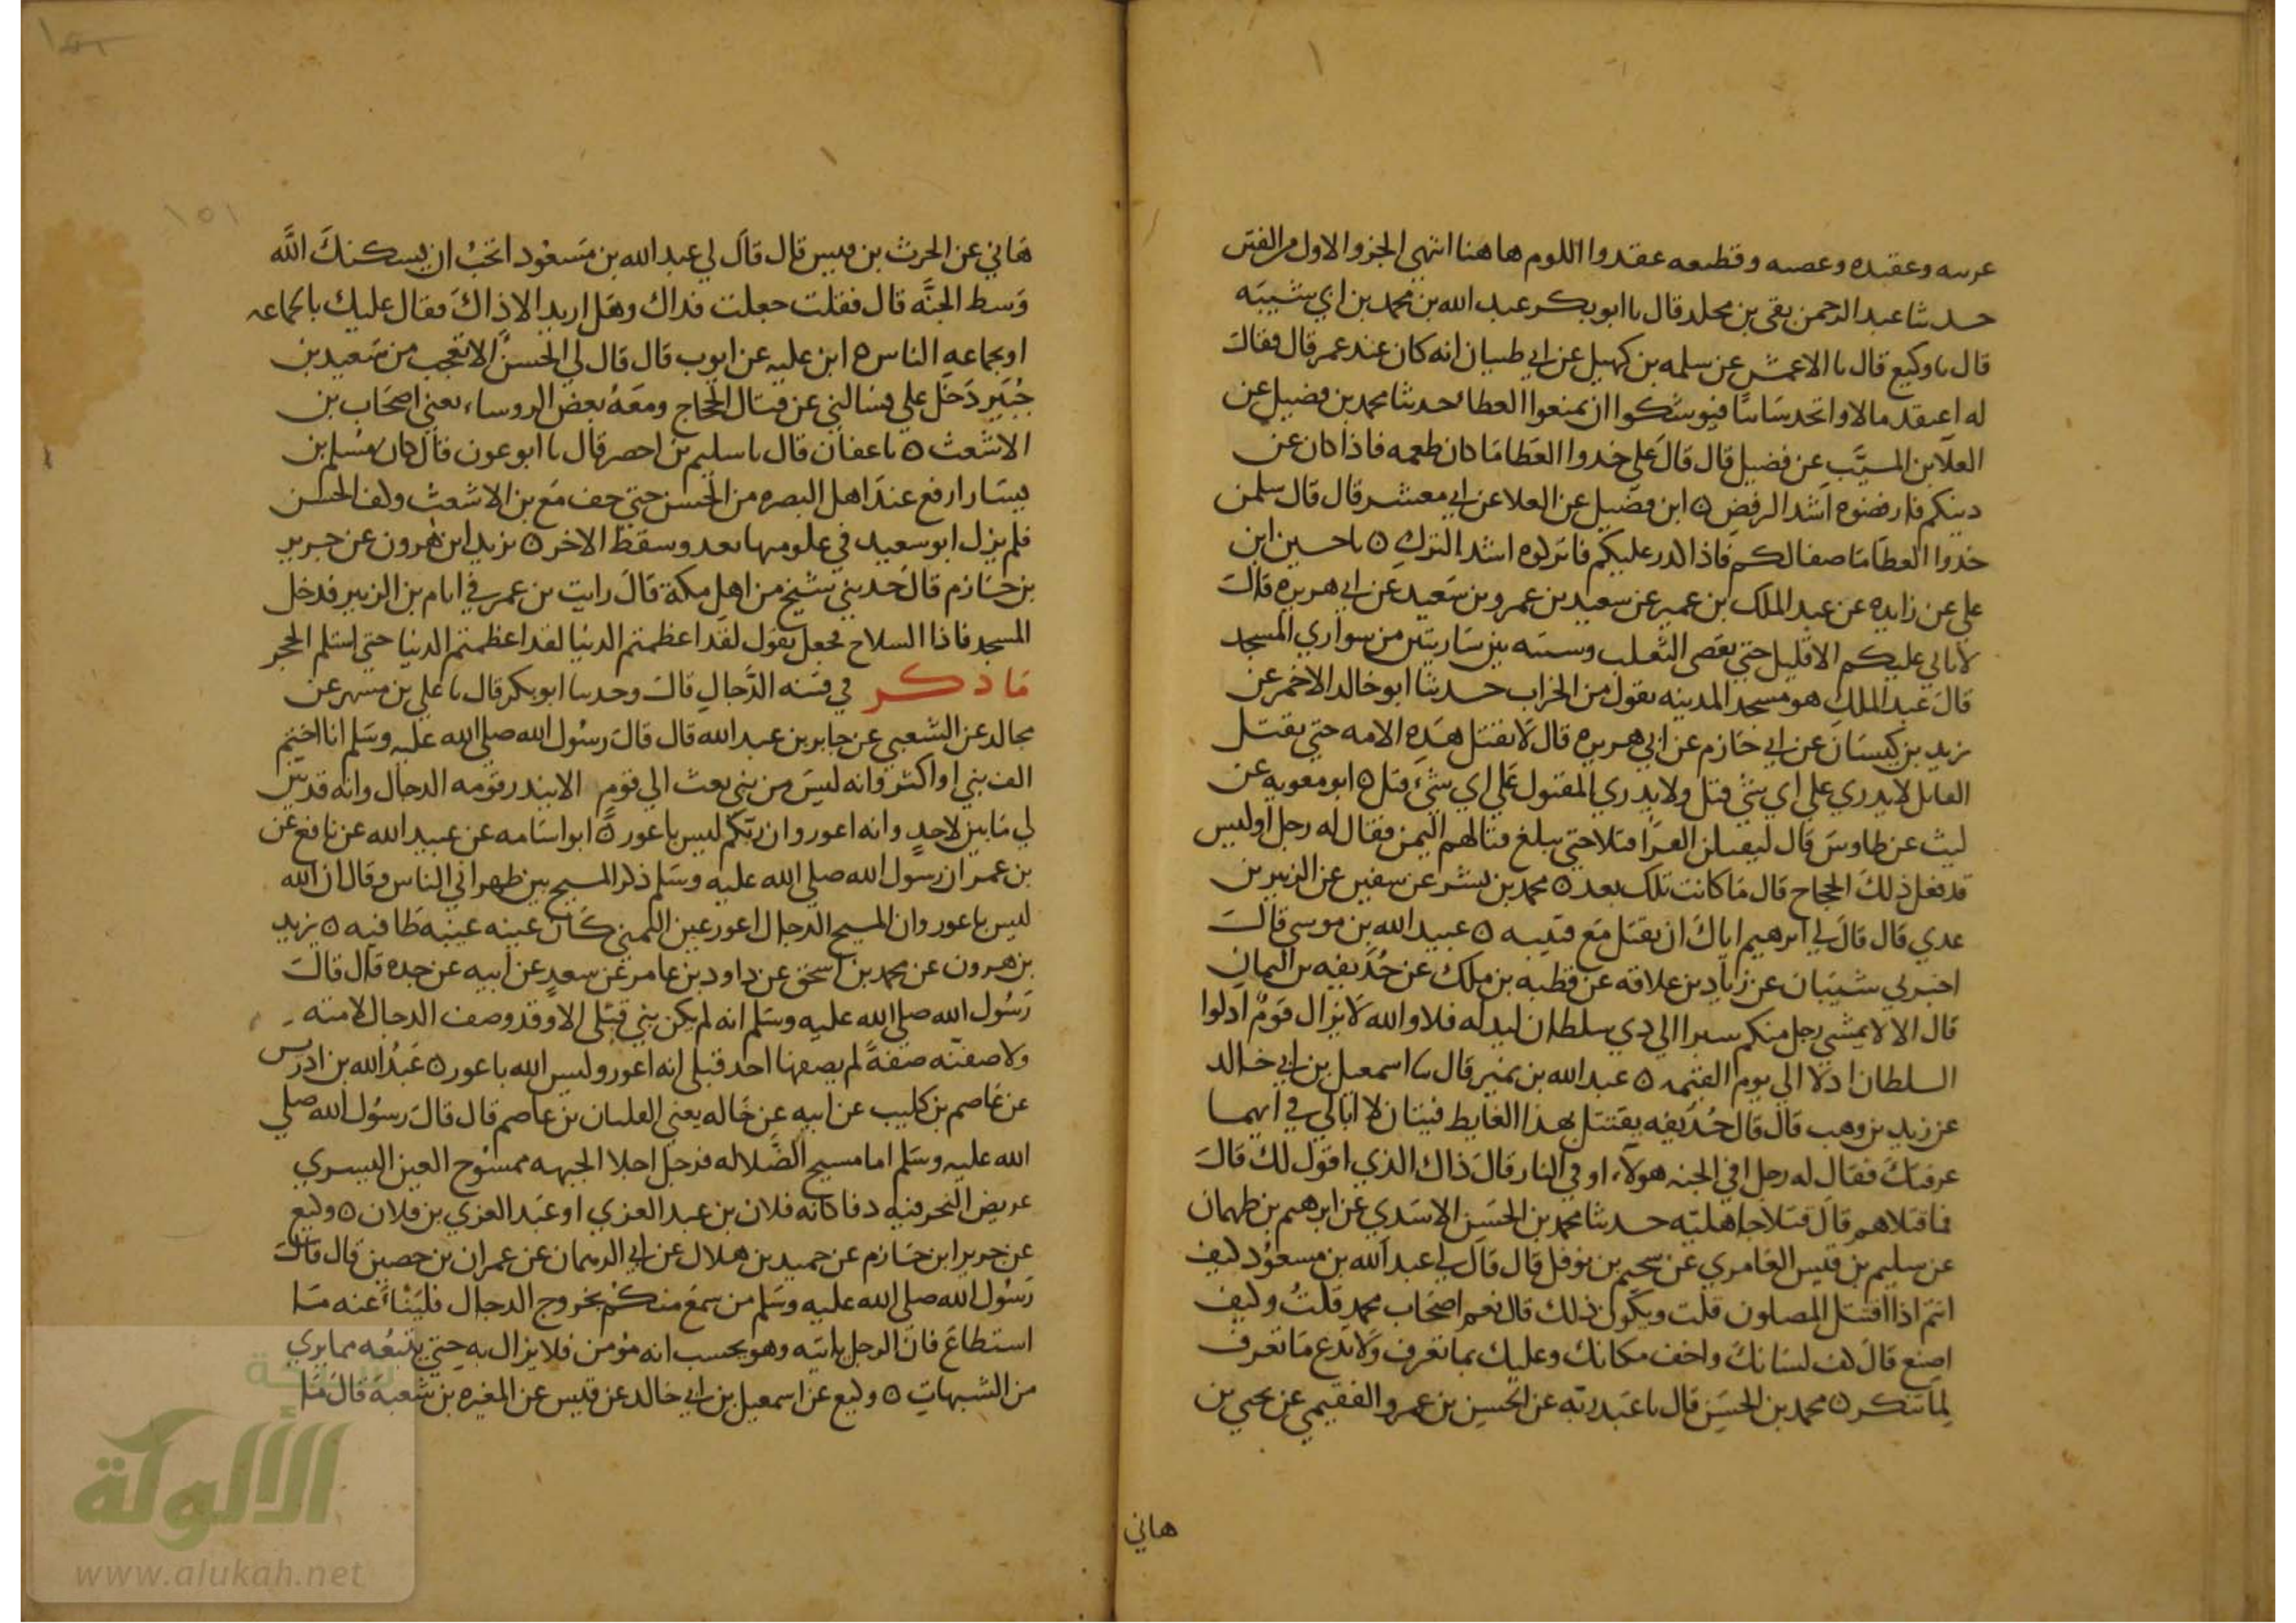 عرسه وعقبده وعصبه وقطيعه عقدوا اللوم هاهنا انتهي الجزو الاول من الفتن
حدثنا عبد الرحمن بقي بن مخلد قال نا ابو بكر عبد الله بن محمد بن ابي شيبه
قال نا وكيع قال نا الاعمش عن سلمه بن كهيل عن ابي ظبيان انه كان عند عمر قال فقال
له اعتقد مالا واتخد سابيا فيوشكوا ان تمنعوا العطا حدثنا محمد بن فضيل عن
العلا بن المسيَّب عن فضيل قال قال علي خدوا العطا ما كان طعمه فاذا كان عن
دينكم فارفضوه اشد الرفض ٥ ابن فضيل عن العلا عن ابي معشر قال قال سلمن
خدوا العطا ما صفا لكم فاذا كدر عليكم فاتركوه اشد الترك ٥ نا حسين ابن
علي عن زايده عن عبد الملك بن عمير عن سعيد بن عمرو بن سعيد عن ابي هريره قال
لا ياتي عليكم الا قليل حتي يقضي الثعلب وسنته بين ساريتين من سواري المسجد
قال عبد الملك هو مسجد المدينه يقول من الخراب حدثنا ابو خالد الاحمر عن
يزيد بن كيسان عن ابي حازم عن ابي هريره قال لا تفتتل هذه الامه حتي يقتل
القاتل لا يدري علي اي شئ قتل ولا يدري المقتول علي اي شئ قتل ٥ ابو معويه عن
ليث عن طاوس قال ليقتلن القرا قتلا حتي يبلغ قتالهم اليمن فقال له رجل او ليس
قد فعل ذلك الحجاج قال ما كانت تلك بعد ٥ محمد بن بشر عن سفين عن الزبير بن
عدي قال قال لي ابرهيم اياك ان تقتل مع فتيبه ٥ عبيد الله بن موسي قال
اخبرني شيبان عن زياد بن علاقه عن قطبه بن ملك عن حُذيفه بن اليمان
قال الا لا يمشي رجل منكم شبرا الي دي سلطان ليدله فلا والله لا يزال قوم ادلوا
السلطان ادلا الي يوم القيمه ٥ عبد الله بن نمير قال نا اسمعيل بن ابي خالد
عن زيد بن وهب قال قال حُذيفه يقتتل بهذا الغايط فيتان لا ابالي في ايهما
عرفتك فقال له رجل افي الجنه هولاء او في النار قال ذاك الذي اقول لك قال
فما قتلاهم قال قتلا جاهليّه حدثنا محمد بن الحسن الاسدي عن ابرهيم بن طهمان
عن سليم بن قيس العامري عن سحيم بن نوفل قال قال لي عبد الله بن مسعود كيف
انتم اذا اقتتل المصلون قلت ويكون ذلك قال نعم اصحاب محمد قلت وكيف
اصنع قال كف لسانك واخف مكانك وعليك بما تعرف ولا تدع ما تعرف
لما تنكر ٥ محمد بن الحسن قال نا عبد ربه عن الحسن بن عمرو الفقيمي عن يحيي بن
هاني
هاني عن الحرث بن قيس قال قال لي عبد الله بن مسعود اتحب ان يسكنك الله
وسط الجنَّه قال فقلت جعلت فداك وهل اريد الا ذاك فقال عليك بالجماعه
او بجماعه الناس ٥ ابن عليه عن ايوب قال قال لي الحسن الا تعجب من سعيد بن
جُبير دخل علي فسالني عن قتال الحجاج ومعه بعض الروساء يعني اصحاب بن
الاشعث ٥ نا عفان قال نا سليم بن احصر قال نا ابو عون قال كان مسلم بن
يسار ارفع عند اهل البصره من الحسن حتي خف مع بن الاشعث وكف الحسن
فلم يزل ابو سعيد في علو منها بعد وسقط الاخر ٥ يزيد ابن هرون عن جرير
بن حازم قال حدثني شيخ من اهل مكة قال رايت بن عمر في ايام بن الزبير فدخل
المسجد فاذا السلاح فجعل يقول لقد اعظمتم الدنيا لقد اعظمتم الدنيا حتي استلم الحجر
ما ذكر في فتنه الدَّجال قال وحدثنا ابو بكر قال نا علي بن مسهر عن
مجالد عن الشعبي عن جابر بن عبد الله قال قال رسول الله صلي الله عليه وسلم انا اختم
الف نبي او اكثر وانه ليس من نبي بعث الي قوم الا ينذر قومه الدجال وانه قد تبين
لي ما بين لاحد وانه اعور وان ربكم ليس باعور ٥ ابو اسامه عن عبيد الله عن نافع عن
بن عمر ان رسول الله صلي الله عليه وسلم ذكر المسيح بين ظهراني الناس وقال ان الله
ليس باعور وان المسيح الدجال اعور عين اليمني كان عينه عنبه طافيه ٥ يزيد
بن هرون عن محمد بن اسحق عن داود بن عامر عن سعد عن ابيه عن جده قال قال
رسول الله صلي الله عليه وسلم انه لم يكن نبي قبلي الا وقد وصف الدجال لامته
ولاصفنّه صفة لم يصفها احد قبلي انه اعور وليس الله باعور ٥ عبد الله بن ادريس
عن عاصم بن كليب عن ابيه عن خاله يعني الفلتان بن عاصم قال قال رسول الله صلي
الله عليه وسلم اما مسيح الضلاله فرجل اجلا الجبهه ممسوح العين اليسري
عريض النحر فيه دفا كانه فلان بن عبد العزي او عبد العزي بن فلان ٥ وكيع
عن جرير ابن حازم عن حميد بن هلال عن ابي الدهمان عن عمران بن حصين قال قال
رسول الله صلي الله عليه وسلم من سمع منكم بخروج الدجال فليَنْأ عنه ما
استطاع فان الرجل ياتيه وهو يحسب انه مؤمن فلا يزال به حتي يتبعه مما يري
من الشبهات ٥ وكيع عن اسمعيل بن ابي خالد عن قيس عن المغيره بن شعبة قال ما
١٥١
شبكة
الألوكة
www.alukah.net